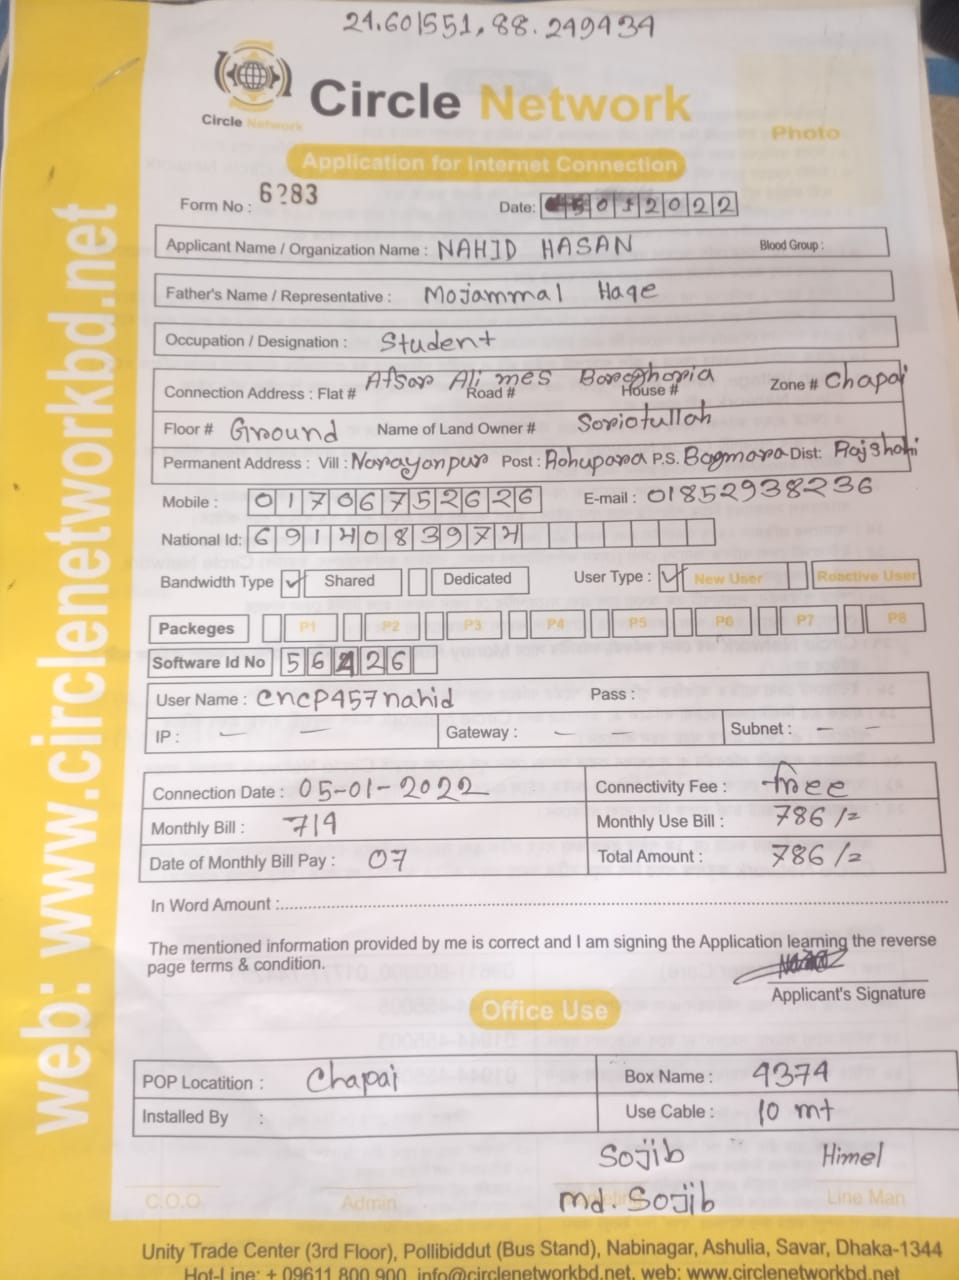 24.601551, 88.249434
Circle Network
Circle Network
Photo
Application for Internet Connection
Form No : 6283
Date: 5 0 1 2 0 2 2
Applicant Name / Organization Name : NAHID HASAN Blood Group :
Father's Name / Representative : Mojammal Haqe
Occupation / Designation : Student
Connection Address : Flat # Afsar Ali mes Road # House # Zone # Chapai
Floor # Ground Name of Land Owner # Soriotullah
Permanent Address : Vill : Narayanpur Post : P.S. Bagmara Dist: Rajshahi
Mobile : 01706752626 E-mail : 01852938236
National Id: 6914083974
Bandwidth Type ✓ Shared Dedicated User Type : ✓ New User Reactive User
Packeges P1 P2 P3 P4 P5 P6 P7 P8
Software Id No 5 6 2 2 6
User Name : cncp457nahid Pass :
IP : — — Gateway : — — Subnet : — —
Connection Date : 05-01-2022 Connectivity Fee : free
Monthly Bill : 714 Monthly Use Bill : 786/=
Date of Monthly Bill Pay : 07 Total Amount : 786/=
In Word Amount :
The mentioned information provided by me is correct and I am signing the Application learning the reverse
page terms & condition.
Applicant's Signature
Office Use
POP Locatition : Chapai Box Name : 4374
Installed By : Use Cable : 10 mt
Sojib Himel
C.O.O Admin md. Sojib Line Man
Unity Trade Center (3rd Floor), Pollibiddut (Bus Stand), Nabinagar, Ashulia, Savar, Dhaka-1344
Hot-Line: + 09611 800 900, info@circlenetworkbd.net, web: www.circlenetworkbd.net
web: www.circlenetworkbd.net